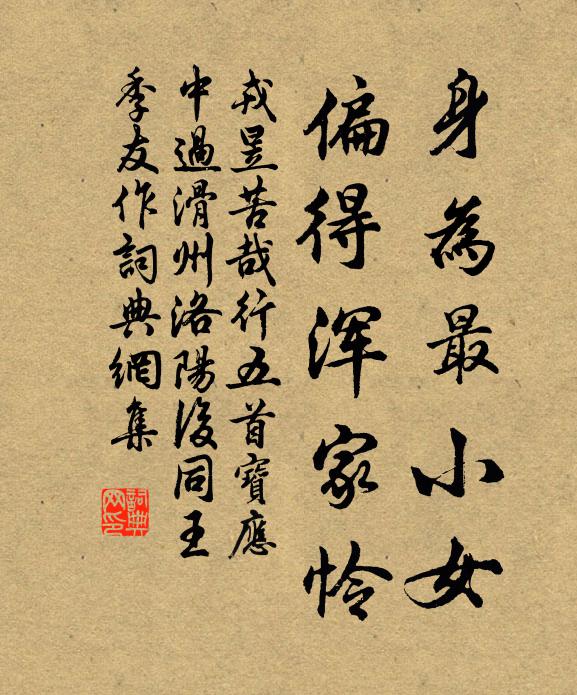 身為最小女
偏得浑家怜
戎昱苦哉行五首寶應
中過滑州洛陽後同王
季友作詞典網集
詞典
网印